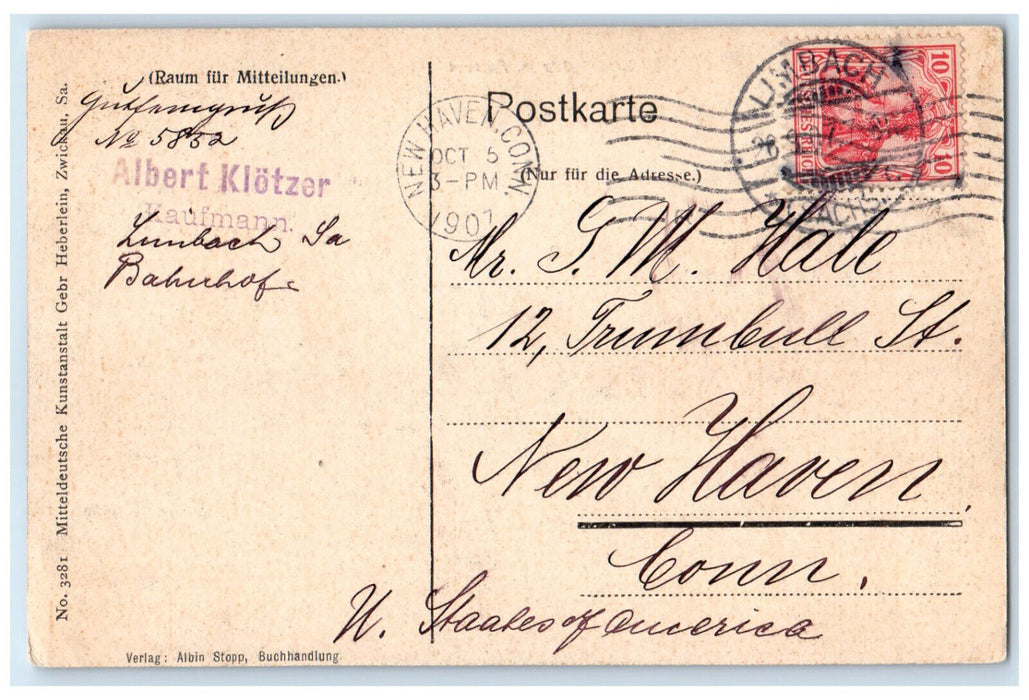 (Raum für Mitteilungen.)
No 5852
Albert Klötzer
Kaufmann.
Limbach Sa
Bahnhof
No. 3281 Mitteldeutsche Kunstanstalt Gebr Heberlein, Zwickau, Sa.
Verlag: Albin Stopp, Buchhandlung
Postkarte
(Nur für die Adresse.)
NEW HAVEN, CONN.
OCT 5
3-PM
1907
LIMBACH
10
10
Mr. S. M. Hale
12, Trumbull St.
New Haven
Conn.
U. Staates of America